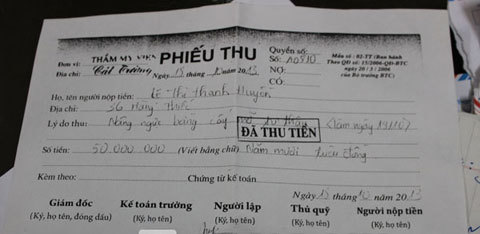 Đơn vị: THẨM MỸ VIỆN PHIẾU THU Quyển số:
Địa chỉ: Cát Tường Ngày 18 tháng 10 năm 2013 Số: A0810 Mẫu số : 02-TT (Ban hành
NỢ: Theo QĐ số: 15/2006-QĐ-BTC
CÓ: ngày 20 / 3 / 2006
của Bộ trưởng BTC)
Họ, tên người nộp tiền: Lê Thị Thanh Huyền
Địa chỉ: 36 Hàng
Lý do thu: Nâng ngực bằng cấy mỡ tự thân (làm ngày 19/10)
ĐÃ THU TIỀN
Số tiền: 50.000.000 (Viết bằng chữ) Năm mươi triệu đồng
Kèm theo: Chứng từ kế toán
Ngày 18 tháng 10 năm 2013
Giám đốc Kế toán trưởng Người lập Thủ quỹ Người nộp tiền
(Ký, họ tên, đóng dấu) (Ký, họ tên) (Ký, họ tên) (Ký, họ tên) (Ký, họ tên)